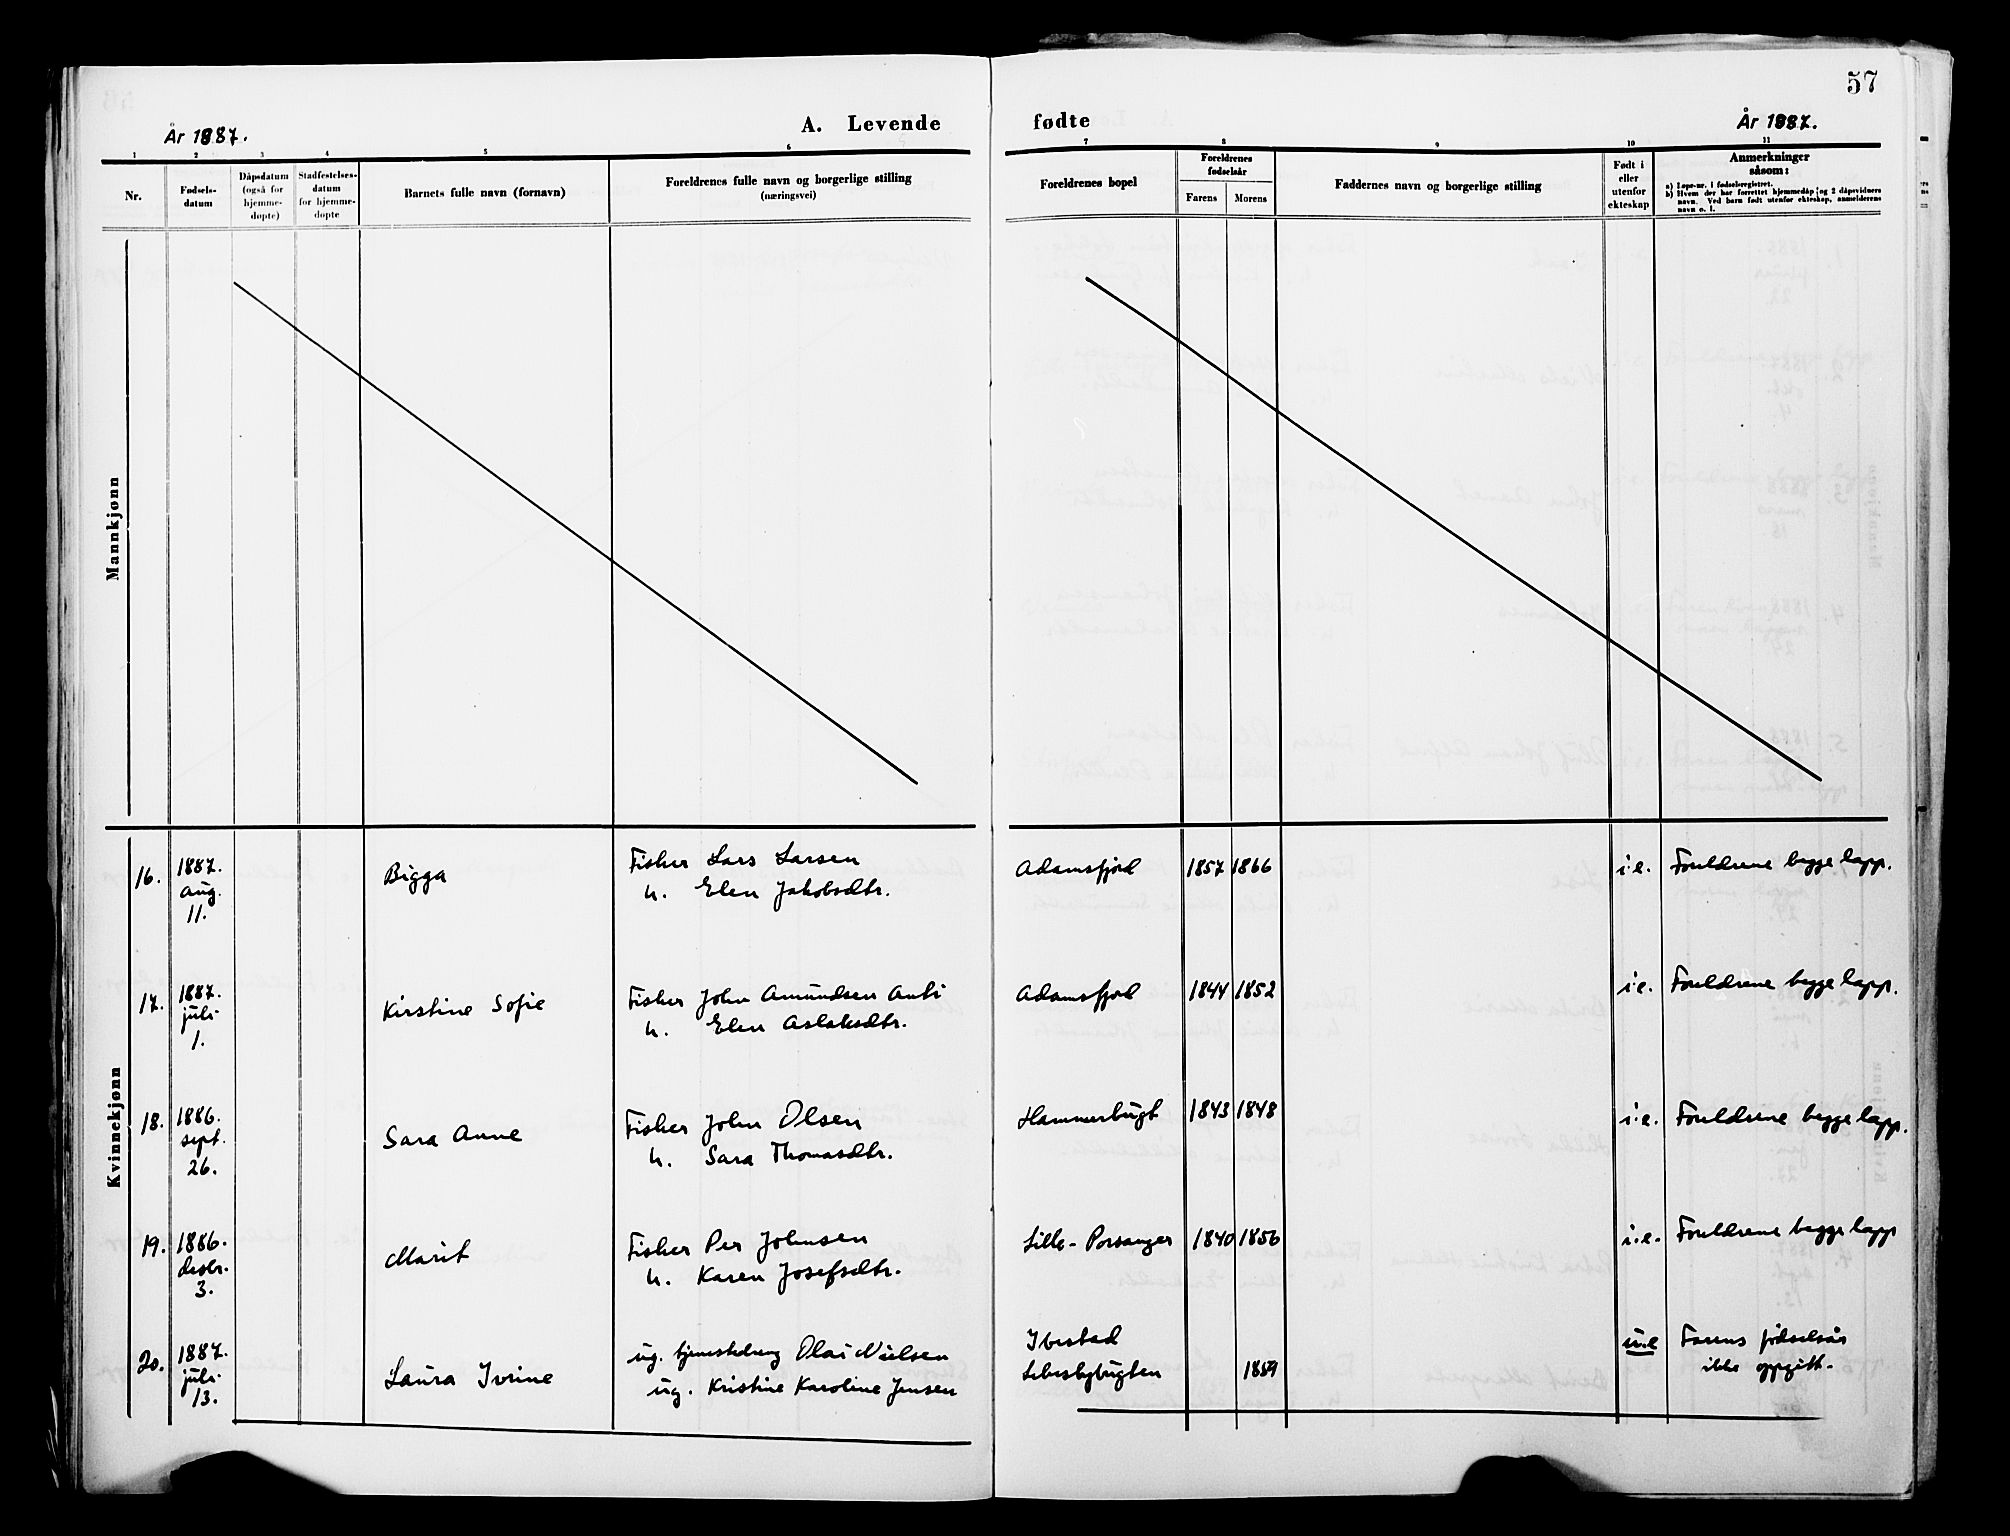 57
År 1887.
A. Levende
fødte
År 1887.
1 2 3 4 5 6 7 8 9 10 11
Nr.
Fødsels-
datum
Dåpsdatum
(også for
hjemme-
døpte)
Stadfestelses-
datum
for hjemme-
døpte
Barnets fulle navn (fornavn)
Foreldrenes fulle navn og borgerlige stilling
(næringsvei)
Foreldrenes bopel
Foreldrenes
fødselsår
Farens Morens
Faddernes navn og borgerlige stilling
Født i
eller
utenfor
ekteskap
Anmerkninger
såsom:
a) Løpe-nr. i fødselsregistret.
b) Hvem der har forrettet hjemmedåp og 2 dåpsvidners
navn. Ved barn født utenfor ekteskap, anmelderens
navn o. l.
Mannkjønn
Kvinnekjønn
16.
1887.
aug.
11.
Bigga
Fisker Lars Larsen
h. Elen Jakobsdtr.
Adamsfjord
1857 1866
i.e.
Foreldrene begge lapp.
17.
1887.
juli
1.
Kirstine Sofie
Fisker John Amundsen Anti
h. Elen Aslaksdtr.
Adamsfjord
1844 1852
i.e.
Foreldrene begge lapp.
18.
1886.
sept.
26.
Sara Anne
Fisker John Olsen
h. Sara Thomasdtr.
Hammerbugt
1843 1848
i.e.
Foreldrene begge lapp.
19.
1886.
desbr.
3.
Marit
Fisker Per Johnsen
h. Karen Josefsdtr.
Lille-Porsanger
1840 1856
i.e.
Foreldrene begge lapp
20.
1887.
juli
13.
Laura Ivrine
ug. tjenestedreng Olai Nielsen
ug. Kristine Karoline Jensen
Ibestad
Lebesbybugten
1859
u.e
Farens fødselsår
ikke oppgitt.